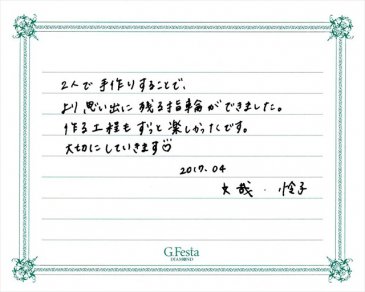 2人で手作りすることで、
より思い出に残る指輪ができました。
作る工程もずっと楽しかったです。
大切にしていきます
2017.04
大哉・怜子
G.Festa
DIAMOND